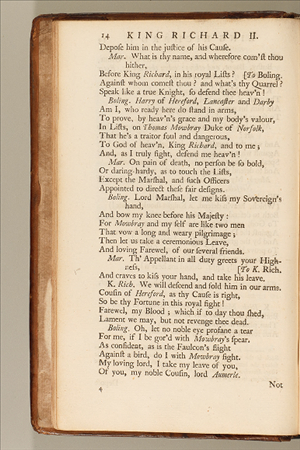 14 KING RICHARD II.
Depose him in the justice of his Cause.
Mar. What is thy name, and wherefore com'st thou
hither,
Before King Richard, in his royal Lists? [To Boling.
Against whom comest thou? and what's thy Quarrel?
Speak like a true Knight, so defend thee heav'n!
Boling. Harry of Hereford, Lancaster and Darby
Am I, who ready here do stand in arms,
To prove, by heav'n's grace and my body's valour,
In Lists, on Thomas Mowbray Duke of Norfolk,
That he's a traitor foul and dangerous,
To God of heav'n, King Richard, and to me;
And, as I truly fight, defend me heav'n!
Mar. On pain of death, no person be so bold,
Or daring-hardy, as to touch the Lists,
Except the Marshal, and such Officers
Appointed to direct these fair designs.
Boling. Lord Marshal, let me kiss my Sovereign's
hand,
And bow my knee before his Majesty:
For Mowbray and my self are like two men
That vow a long and weary pilgrimage;
Then let us take a ceremonious Leave,
And loving Farewel, of our several friends.
Mar. Th' Appellant in all duty greets your High-
ness, [To K. Rich.
And craves to kiss your hand, and take his leave.
K. Rich. We will descend and fold him in our arms.
Cousin of Hereford, as thy Cause is right,
So be thy Fortune in this royal fight!
Farewel, my Blood; which if to day thou shed,
Lament we may, but not revenge thee dead.
Boling. Oh, let no noble eye profane a tear
For me, if I be gor'd with Mowbray's spear.
As confident, as is the Faulcon's flight
Against a bird, do I with Mowbray fight.
My loving lord, I take my leave of you,
Of you, my noble Cousin, lord Aumerle.
4 Not